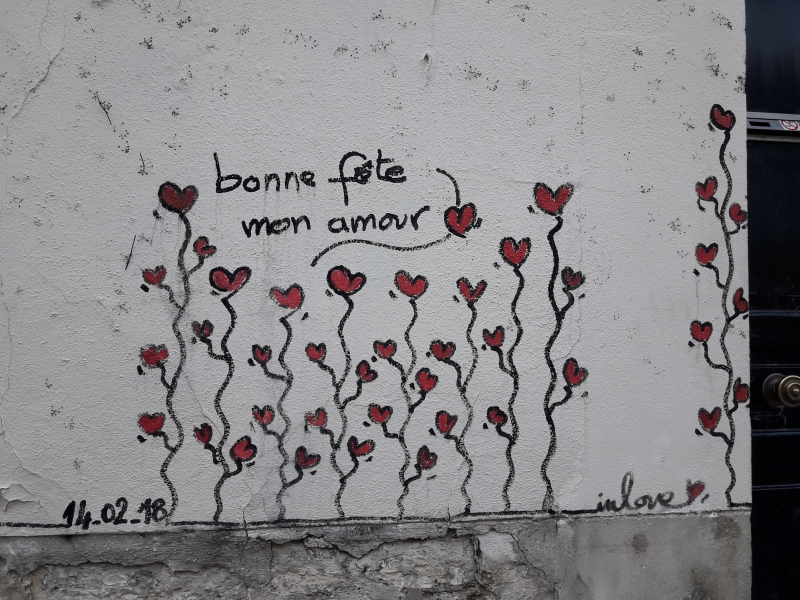 bonne fête
mon amour
14_02_18
inlove